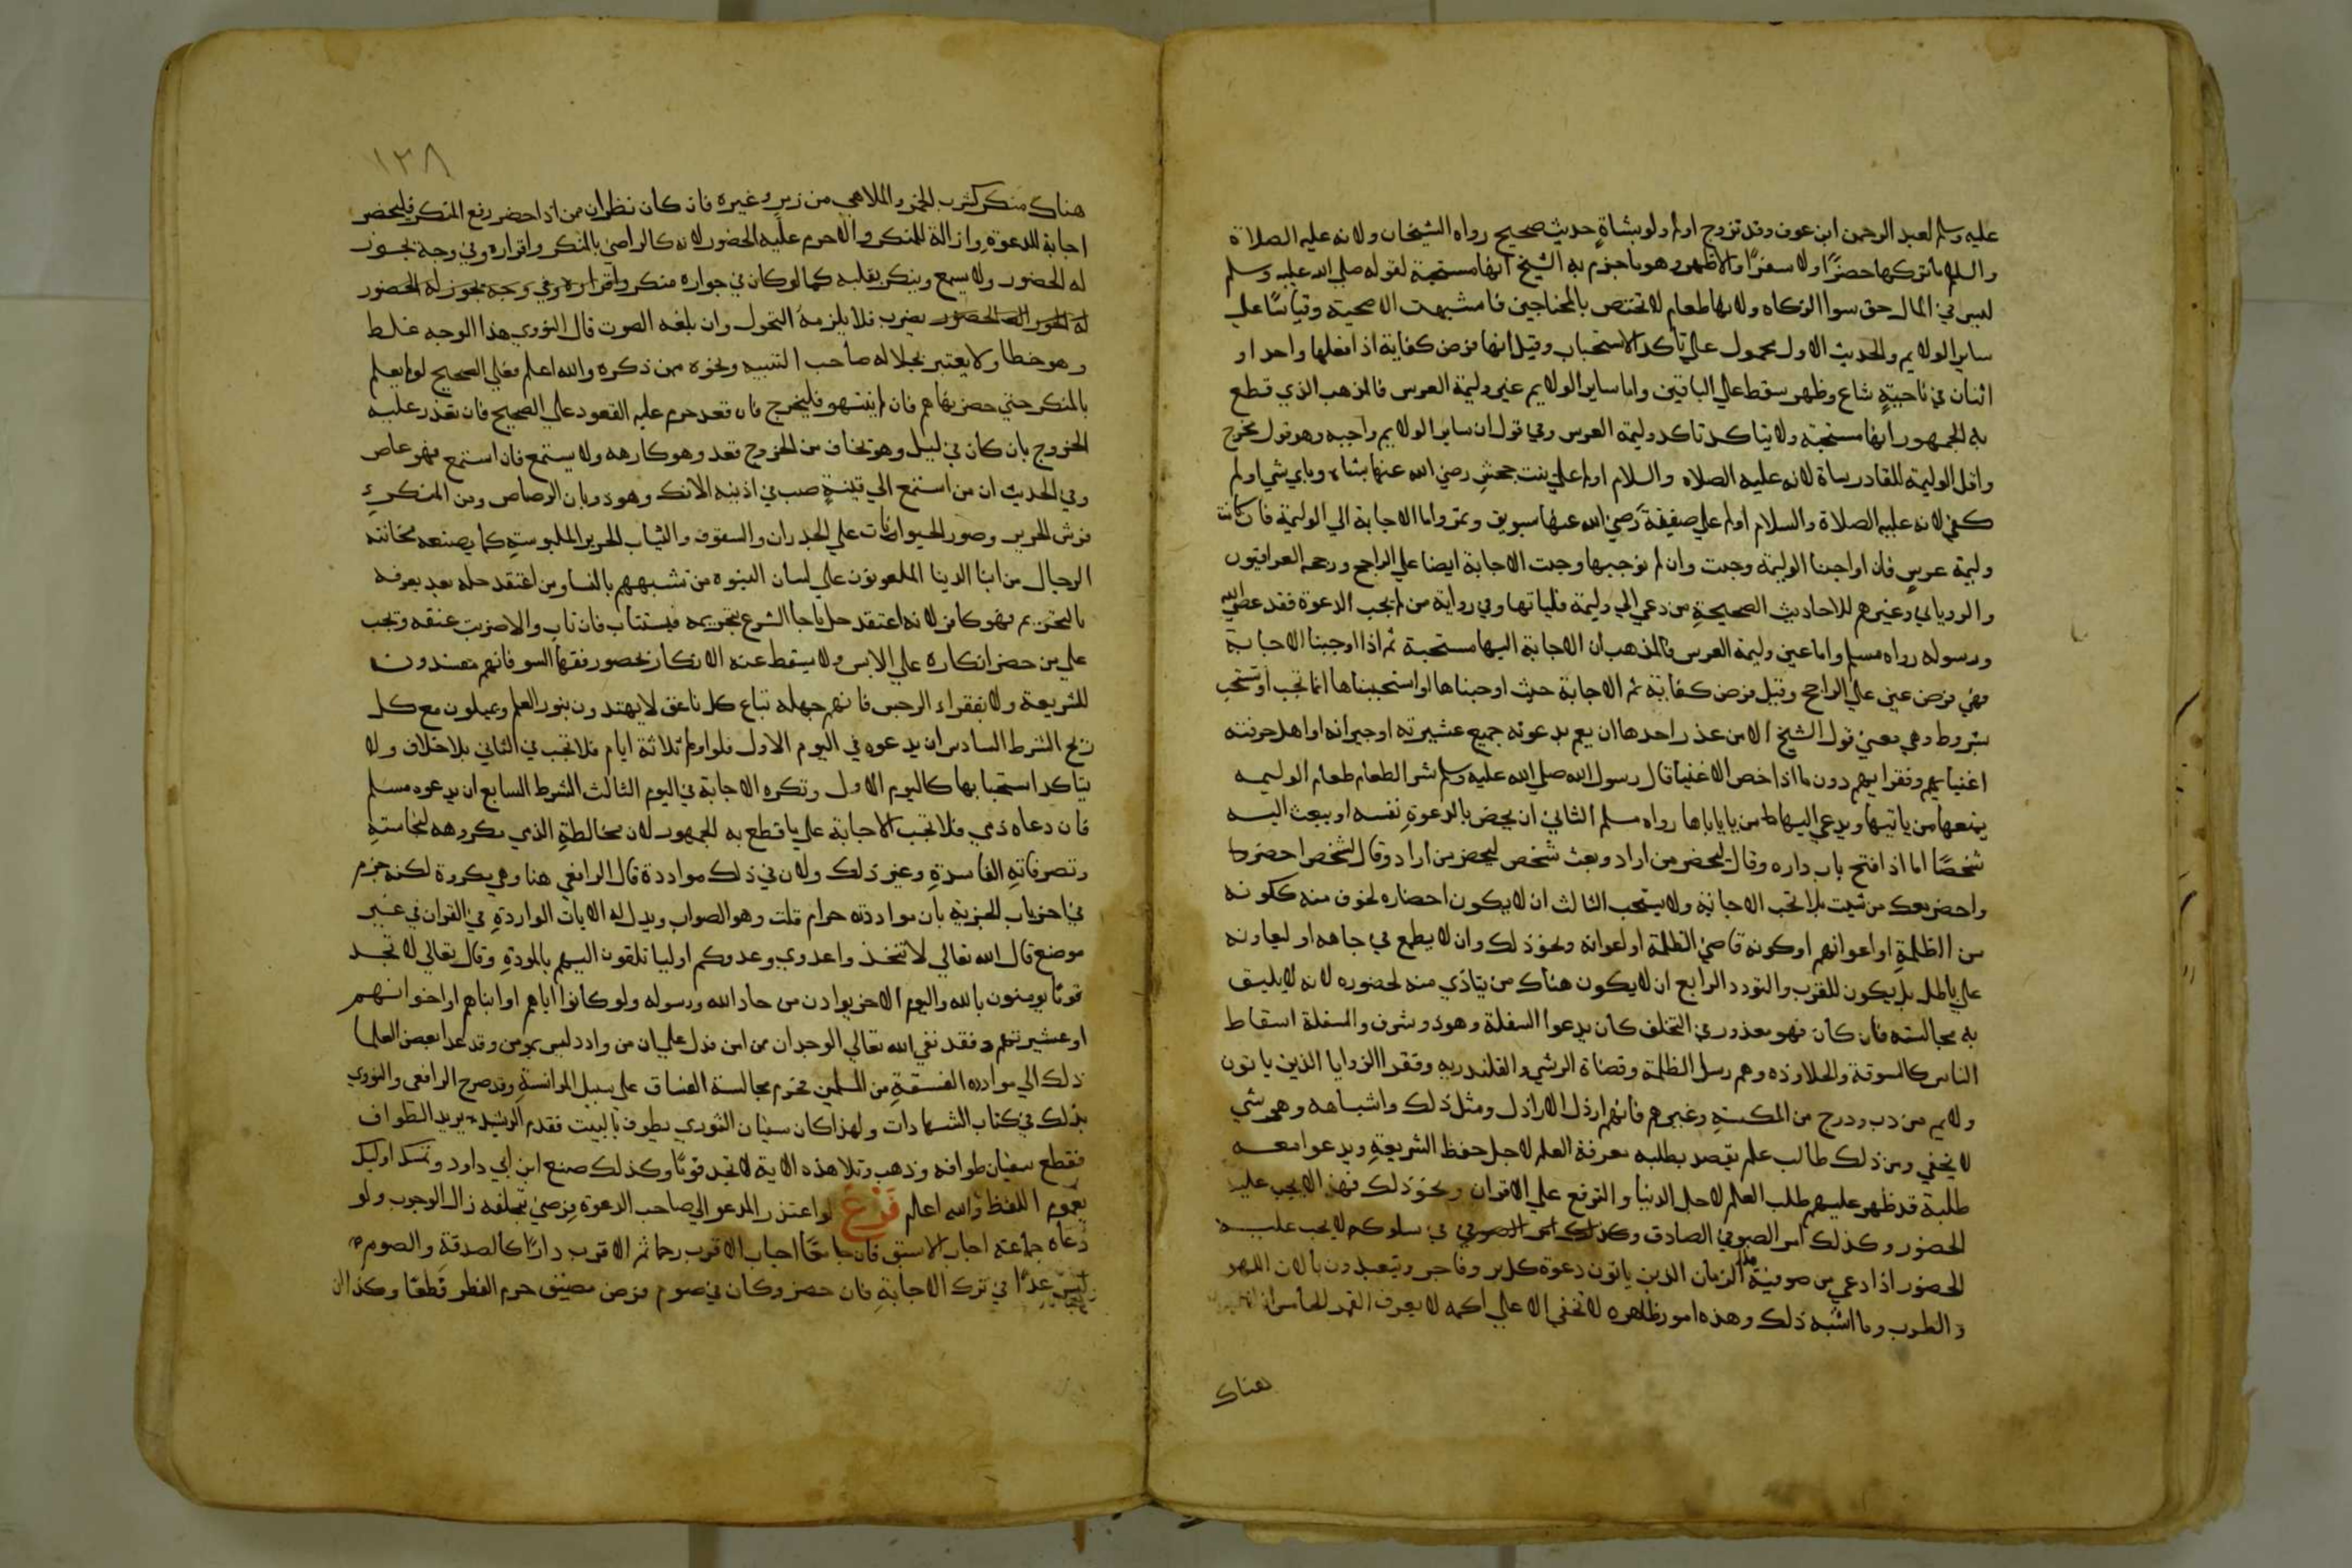 عليه وسلم لعبد الرحمن ابن عوف وقد تزوج اولم ولو بشاةٍ حديث صحيح رواه الشيخان ولانه عليه الصلاة
والسلام ما تركها حضرًا ولا سفرًا والاظهر وهو ما جزم به الشيخ انها مستحبة لقوله صلي الله عليه وسلم
ليس في المال حق سوا الزكاه ولانها طعام لا تختص بالمحتاجين فاشبهت الاضحية وقياسًا علي
ساير الولايم والحديث الاول محمول علي تأكد الاستحباب وقيل انها فرض كفاية اذا فعلها واحد او
اثنان في ناحيةٍ شاع وظهر سقط علي الباقين واما ساير الولايم غير وليمة العرس فالمذهب الذي قطع
به الجمهور انها مستحبة ولا يتاكد تاكد وليمة العرس وفي قول ان ساير الولايم واجبه وهو قول مخرج
واقل الوليمة للقادر شاة لانه عليه الصلاه والسلام اولم علي بنت جحش رضي الله عنها بشاه وباي شي اولم
كفي لانه عليه الصلاة والسلام اولم علي صفية رضي الله عنها بسويق وتمر واما الاجابة الي الوليمة فان كانت
وليمة عرسٍ فان اوجبنا الوليمة وجبت وان لم نوجبها وجبت الاجابة ايضا علي الراجح ورجحه العراقيون
والروياني وغيرهم للاحاديث الصحيحةِ من دعي الي وليمة فلياتها وفي رواية من لم يجب الدعوة فقد عصي الله
ورسوله رواه مسلم واما غير وليمة العرس فالمذهب ان الاجابة اليها مستحبة ثم اذا اوجبنا الاجابة
فهي فرض عين علي الراجح وقيل فرض كفاية ثم الاجابة حيث اوجبناها او استحببناها انما تجب او تستحب
بشروط وهي معني قول الشيخ الا من عذر احدها ان يعم بدعوته جميع عشيرته او جيرانه او اهل حرفته
اغنيايهم وفقرايهم دون ما اذا خص الاغنيا قال رسول الله صلي الله عليه وسلم شر الطعام طعام الوليمه
يمنعها من ياتيها ويدعي اليها من ياباها رواه مسلم الثاني ان يخص بالدعوةِ نفسه او يبعث اليه
شخصًا اما اذا فتح باب داره وقال ليحضر من اراد وبعث شخص ليحضر من اراد وقال لشخص احضر
واحضر معك من شيت فلا تجب الاجابة ولا يستحب الثالث ان لا يكون احضاره لخوف منه ككونه
من الظلمةِ او اعوانهم او كونه قاضي الظلمة او اعوانه ونحو ذلك وان لا يطمع في جاهه او ليعاونه
علي باطل بل يكون للتقرب والتودد الرابع ان لا يكون هناك من يتاذي منه لحضوره لانه لا يليق
به مجالسته فان كان فهو معذور في التخلف كان يدعوا السفلة وهو ذو شرف والسفلة اسقاط
الناس كالسوقة والجلاوزه وهم رسل الظلمة وقضاة الرشي والقلندريه وفقرا الزوايا الذين ياتون
ولايم من دب ودرج من المكسةِ وغيرهم فانهم ارذل الاراذل ومثل ذلك واشباهه وهي شي
لا يخفي ومن ذلك طالب علم يقصد بطلبه معرفة العلم لاجل حفظ الشريعةِ ويدعوا معه
طلبة قد ظهر عليهم طلب العلم لاجل الدنيا والترفع علي الاقران ونحو ذلك فهذا لا يجب عليه
الحضور وكذلك امر الصوفي الصادق وكذلك امر الصوفي في سلوكه لا يجب عليه
الحضور اذا دعي من صوفية هذا الزمان الذين ياتون دعوة كل بر وفاجر ويتعبدون بالات اللهو
والطرب وما اشبه ذلك وهذه امور ظاهره لا تخفي الا علي اكمه لا يعرف القمر الخامس ان لا يكون
هناك
١٣٨
هناك منكر كشرب الخمر والملاهي من زمر وغيره فان كان نظر ان ممن اذا حضر رفع المنكر فليحضر
اجابة للدعوةِ وازالة للمنكر والا حرم عليه الحضور لانه كالراضي بالمنكر واقراره وفي وجه يجوز
له الحضور ولا يسمع وينكر بقلبه كما لو كان في جواره منكر واقراره وفي وجه يجوز له الحضور
له الحضور يضرب فلا يلزمه التحول وان بلغه الصوت قال النووي هذا الوجه غلط
وهو خطا ولا يعتبر بجلالة صاحب التنبيه ونحوه ممن ذكره والله اعلم فعلي الصحيح لو لم يعلم
بالمنكر حتي حضر نهاهم فان لم ينتهو فليخرج فان قعد حرم عليه القعود علي الصحيح فان تعذر عليه
الخروج بان كان في ليل وهو يخاف من الخروج قعد وهو كاره ولا يستمع فان استمع فهو عاص
وفي الحديث ان من استمع الي قينةٍ صب في اذنيه الانك وهو ذوبان الرصاص ومن المنكر
فرش الحرير وصور الحيوانات علي الجدران والسقوف والثياب الحرير الملبوسةِ كما يصنعه مخانثه
الرجال من ابنا الدنيا الملعونون علي لسان النبوه من تشبههم بالنسا ومن اعتقد حله بعد يعرفه
بالتحريم فهو كافر لانه اعتقد حل ما جا الشرع بتحريمه فيستتاب فان تاب والا ضربت عنقه ويجب
علي من حضر انكاره علي لابس ولا يسقط عنه الانكار بحضور فقها السو فانهم مفسدون
للشريعة ولا بفقراء الرجس فانهم جهله تباع كل ناعق لا يهتدون بنور العلم ويميلون مع كل
ريح الشرط السادس ان يدعوه في اليوم الاول فلو اولم ثلاثة ايام فلا تجب في الثاني بلا خلاف ولا
يتاكد استحبابها كاليوم الاول وتكره الاجابة في اليوم الثالث الشرط السابع ان يدعوه مسلم
فان دعاه ذمي فلا تجب الاجابة علي ما قطع به الجمهور لان مخالطةِ الذمي مكروهه لنجاستهِ
وتصرفاتهِ الفاسدةِ وغير ذلك ولان في ذلك مواددة قال الرافعي هنا وهي مكروة لكنه جزم
في اخر باب الجزيةِ بان مواددته حرام قلت وهو الصواب ويدل له الايات الواردةِ في القران في غير
موضع قال الله تعالي لا تتخذوا عدوي وعدوكم اوليا تلقون اليهم بالمودةِ وقال تعالي لا تجد
قومًا يومنون بالله واليوم الاخر يوادون من حاد الله ورسوله ولو كانوا اباهم او ابناهم او اخوانهم
او عشيرتهم فقد نفي الله تعالي الوجدان ممن امن فدل علي ان من وادد ليس بمومن وقد عدا بعض العلما
ذلك الي مواددة الفسقةِ من المسلمين فحرم مجالسة الفساق علي سبيل الموانسةِ وقد صرح الرافعي والنووي
بذلك في كتاب الشهادات ولهذا كان سفيان الثوري يطوف بالبيت فقدم الرشيد يريد الطواف
فقطع سفيان طوافه وذهب وتلا هذه الاية لا تجد قومًا وكذلك صنع ابن ابي داود وتمسك اوليك
بعموم اللفظ والله اعلم فَرْعٌ لو اعتذر المدعو الي صاحب الدعوةِ فرضي بتخلفه زال الوجوب ولو
دعاه جماعة اجاب الاسبق فان جا معًا اجاب الاقرب رحما ثم الاقرب دارًا كالصدقةِ والصوم
ليس عذرًا في ترك الاجابةِ فان حضر وكان في صوم فرض مضيق حرم الفطر قطعًا وكذا ان